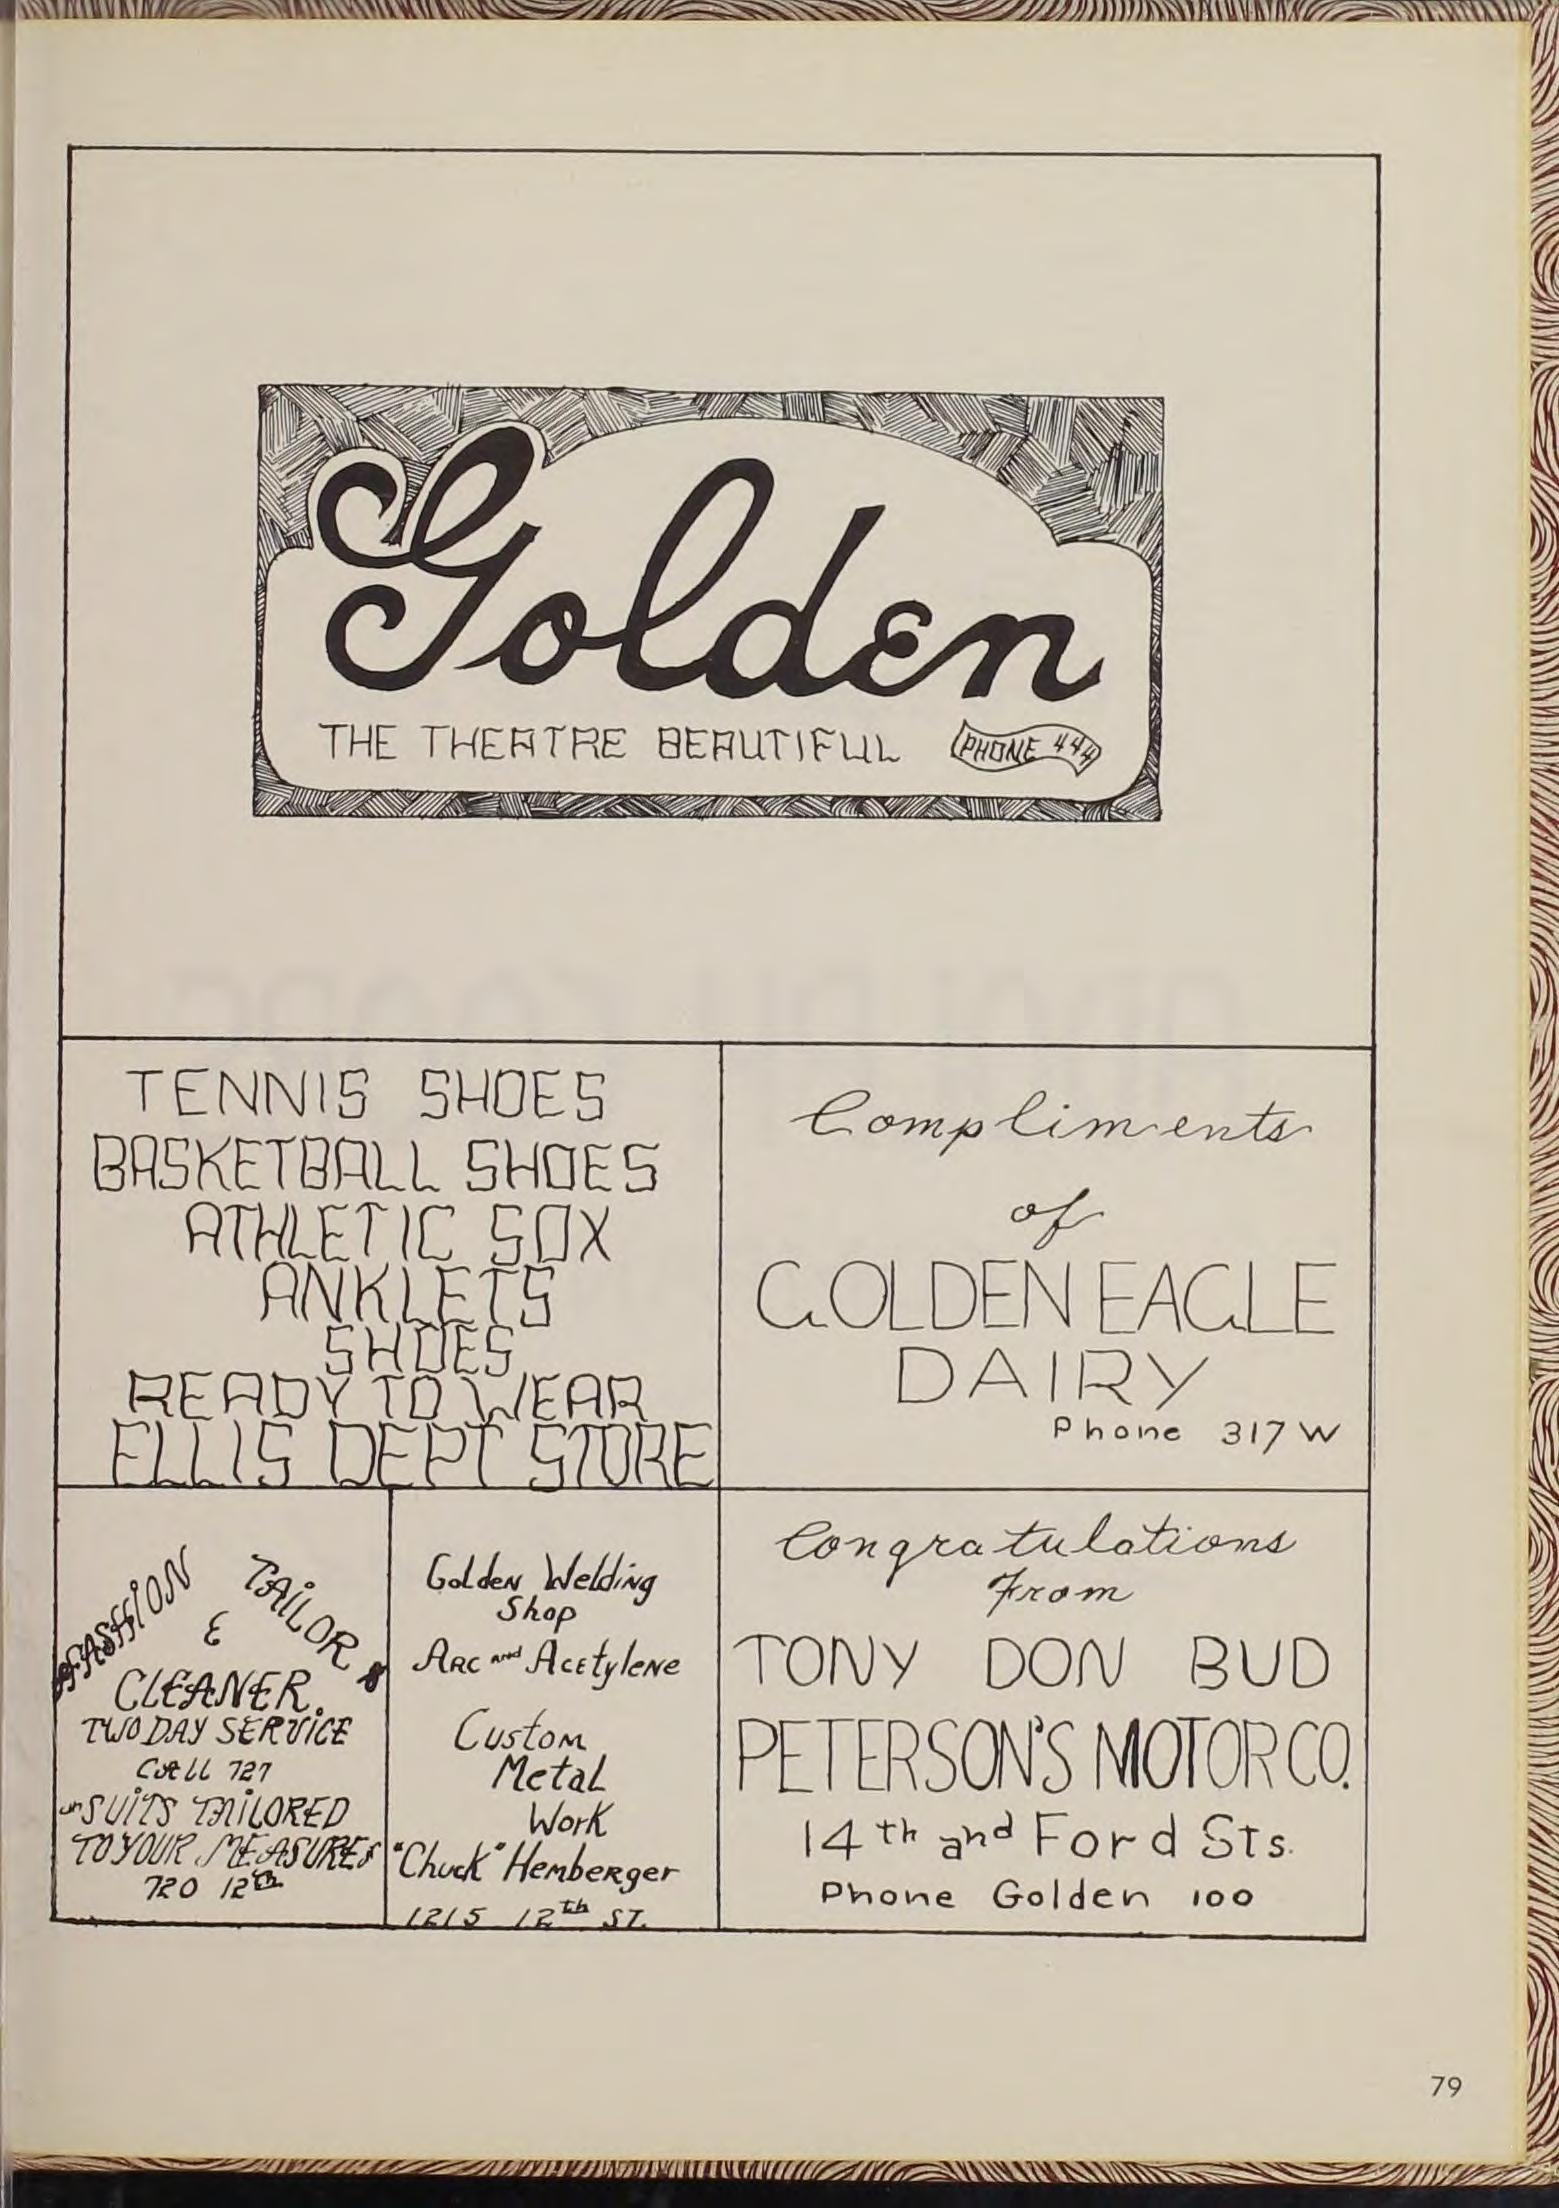 Golden
THE THEATRE BEAUTIFUL PHONE 444
TENNIS SHOES
BASKETBALL SHOES
ATHLETIC SOX
ANKLETS
SHOES
READY TO WEAR
ELLIS DEPT STORE
Compliments
of
GOLDEN EAGLE
DAIRY
Phone 317 W
FASHION TAILOR
&
CLEANER
TWO DAY SERVICE
CALL 727
SUITS TAILORED
TO YOUR MEASURES
720 12th
Golden Welding
Shop
Arc and Acetylene
Custom
Metal
Work
"Chuck" Hemberger
1215 12th ST.
Congratulations
From
TONY DON BUD
PETERSON'S MOTOR CO.
14th and Ford Sts.
Phone Golden 100
79